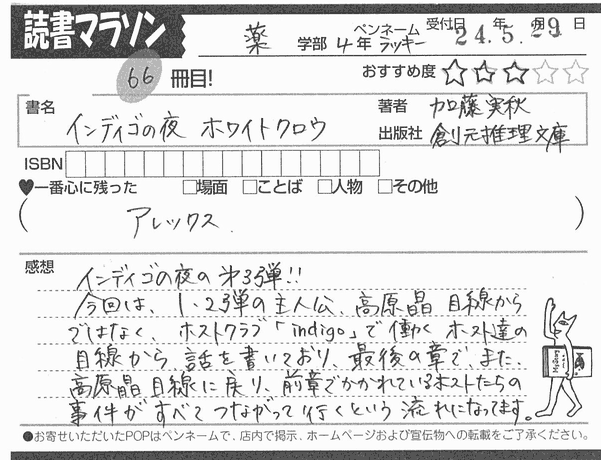 読書マラソン
薬 学部 4年 ペンネーム ラッキー 受付日 24年 5月 29日
66 冊目!
おすすめ度 ☆☆☆☆☆
書名 インディゴの夜 ホワイトクロウ
著者 加藤実秋
出版社 創元推理文庫
ISBN
♥一番心に残った □場面 □ことば □人物 □その他
(アレックス.)
感想
インディゴの夜の第3弾!!
今回は、1・2弾の主人公、高原晶目線から
ではなく、ホストクラブ「indigo」で働くホスト達の
目線から話を書いており、最後の章で、また、
高原晶目線に戻り、前章でかかれているホストたちの
事件がすべてつながって行くという流れになってます。
●お寄せいただいたPOPはペンネームで、店内で掲示、ホームページおよび宣伝物への転載をご了承ください。